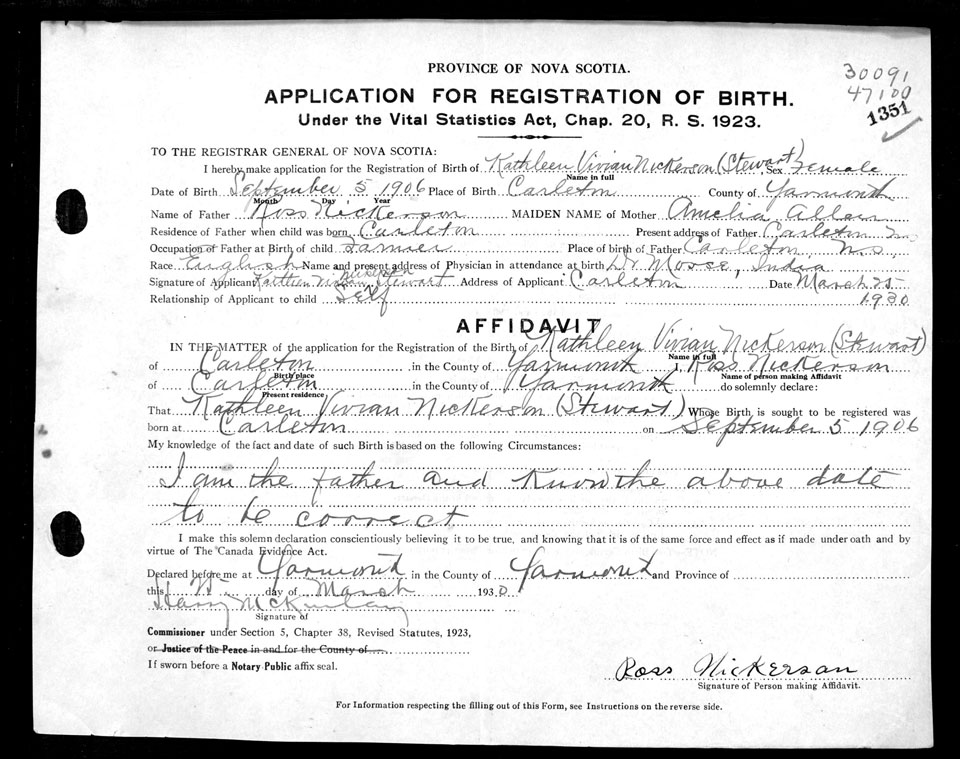 PROVINCE OF NOVA SCOTIA.
30091
47100
1351
APPLICATION FOR REGISTRATION OF BIRTH.
Under the Vital Statistics Act, Chap. 20, R. S. 1923.
TO THE REGISTRAR GENERAL OF NOVA SCOTIA:
I hereby make application for the Registration of Birth of Kathleen Vivian Nickerson (Stewart) Sex Female
Name in full
Date of Birth September 5 1906 Place of Birth Carleton County of Yarmouth
Month Day Year
Name of Father Ross Nickerson MAIDEN NAME of Mother Amelia Allen
Residence of Father when child was born Carleton Present address of Father Carleton N.S.
Occupation of Father at Birth of child Farmer Place of birth of Father Carleton N.S.
Race English Name and present address of Physician in attendance at birth Dr. India
Nickerson
Signature of Applicant Kathleen Vivian Stewart Address of Applicant Carleton Date March 25
Relationship of Applicant to child Self 1930
AFFIDAVIT
IN THE MATTER of the application for the Registration of the Birth of Kathleen Vivian Nickerson (Stewart)
Name in full
of Carleton in the County of Yarmouth I, Ross Nickerson
Birth place Name of person making Affidavit
of Carleton in the County of Yarmouth do solemnly declare:
Present residence
That Kathleen Vivian Nickerson (Stewart) Whose Birth is sought to be registered was
born at Carleton on September 5 1906
My knowledge of the fact and date of such Birth is based on the following Circumstances:
I am the father and know the above date
to be correct
I make this solemn declaration conscientiously believing it to be true, and knowing that it is of the same force and effect as if made under oath and by
virtue of The Canada Evidence Act.
Declared before me at Yarmouth in the County of Yarmouth and Province of
this day of March 1930
Harry McKinlay
Signature of
Commissioner under Section 5, Chapter 38, Revised Statutes, 1923,
or Justice of the Peace in and for the County of
If sworn before a Notary Public affix seal.
Ross Nickerson
Signature of Person making Affidavit.
For Information respecting the filling out of this Form, see Instructions on the reverse side.